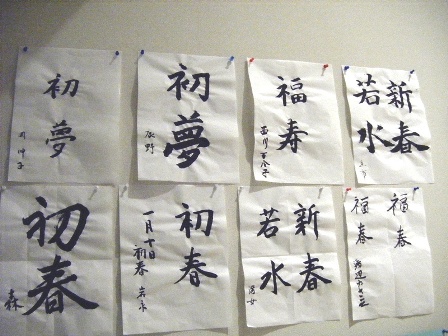 初夢
初夢
福寿
新春
若水
初春
森
初春
一月十日
初春
新春
若水
福春
福春